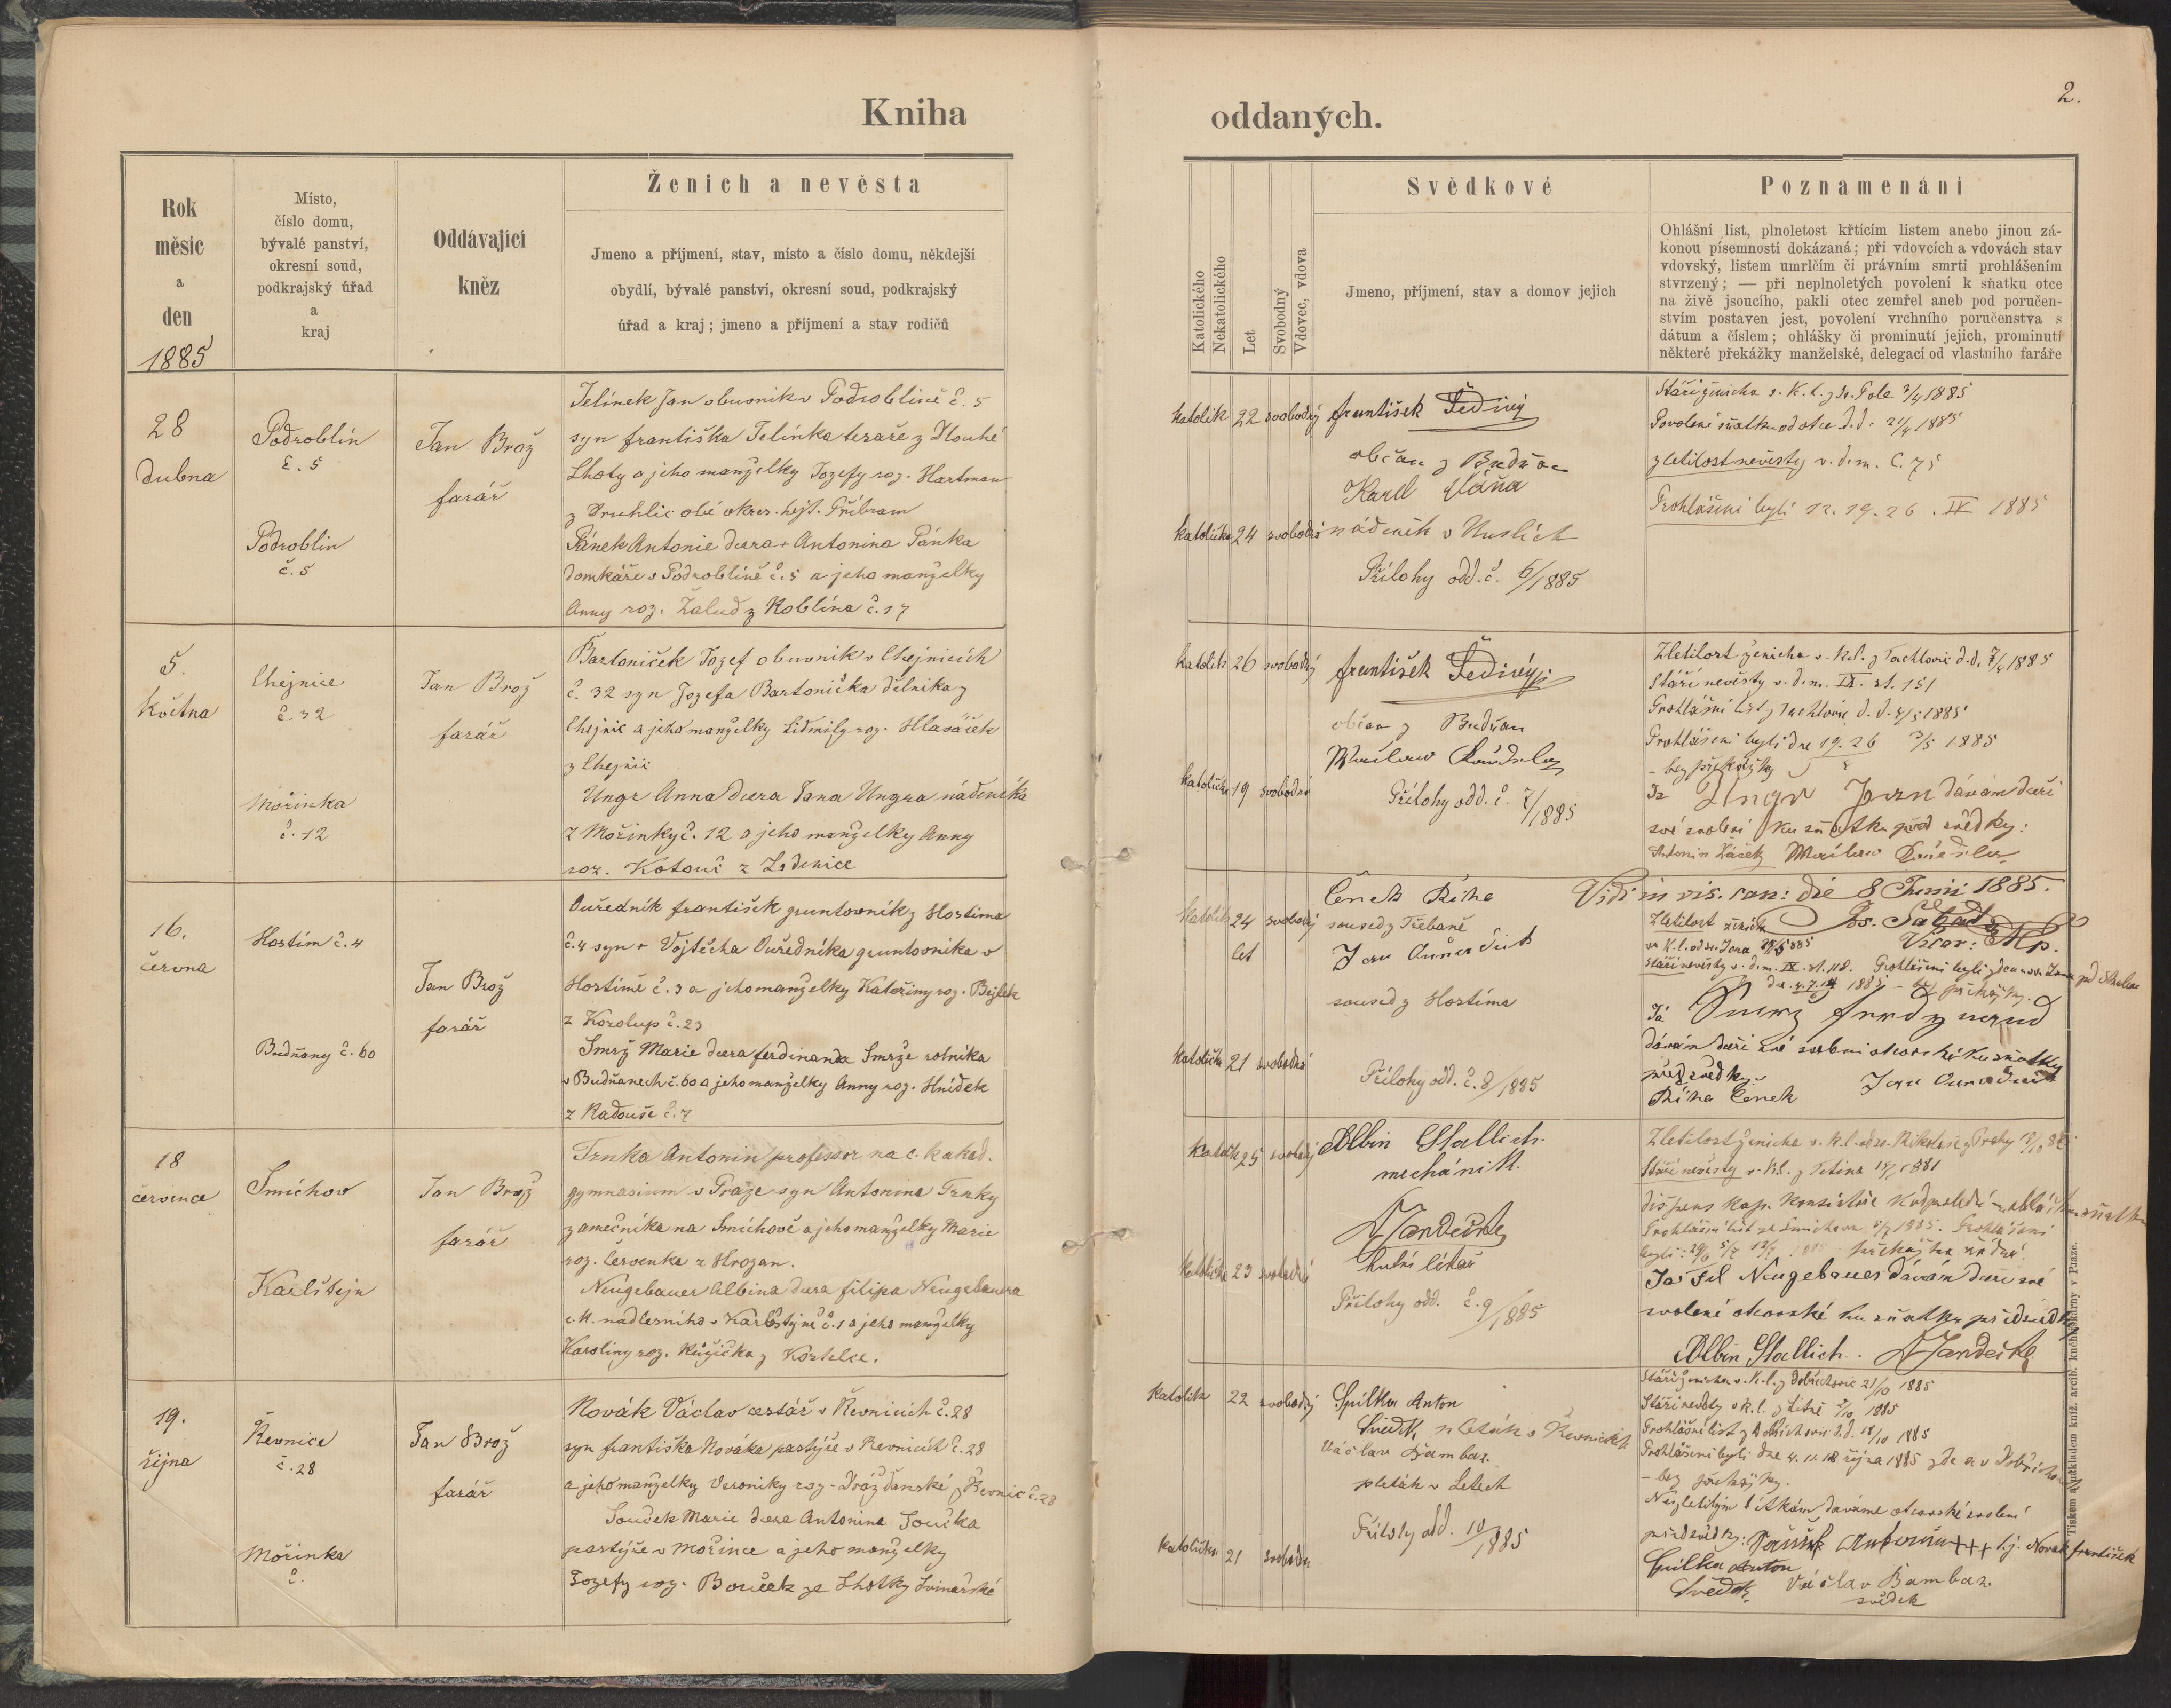 Kniha
oddaných.
2.
Rok
měsíc
a
den
1885
Místo,
číslo domu,
bývalé panství,
okresní soud,
podkrajský úřad
a
kraj
Oddávající
kněz
Ženich a nevěsta
Jmeno a příjmení, stav, místo a číslo domu, někdejší
obydlí, bývalé panství, okresní soud, podkrajský
úřad a kraj; jmeno a příjmení a stav rodičů
Katolického
Nekatolického
Let
Svobodný
Vdovec, vdova
Svědkové
Jmeno, příjmení, stav a domov jejich
Poznamenání
Ohlášní list, plnoletost křtícím listem anebo jinou zá-
konou písemností dokázaná; při vdovcích a vdovách stav
vdovský, listem umrlčím či právním smrti prohlášením
stvrzený; — při neplnoletých povolení k sňatku otce
na živě jsoucího, pakli otec zemřel aneb pod poručen-
stvím postaven jest, povolení vrchního poručenstva s
dátum a číslem; ohlášky či prominutí jejich, prominutí
některé překážky manželské, delegací od vlastního faráře
28
dubna
Podroblín
č. 5
Podroblin
č. 5
Jan Brož
farář
Jelínek Jan obuvník v Podroblíně č. 5
syn františka Jelínka tesaře z Dlouhé
Lhoty a jeho manželky Jozefy roz. Hartman
z Druhlic obé okres. hejt. Příbram
Pánek Antonie dcera + Antonina Pánka
domkáře v Podroblíně č. 5 a jeho manželky
Anny roz. Žalud z Koblína č. 17
katolík 22 svobodný
katolička 24 svobodná
františek Šedivý
občan z Budňan
Karel Váňa
nádeník v Nuslích
Přílohy odd. č. 6/1885
Stáří ženicha v. K. l. z Sv. Pole 3/4 1885
Povolení sňatku od otce d.d. 21/4 1885
zletilost nevěsty v. d. m. C. 75
Prohlášeni byli 12. 19. 26. IV 1885
5.
května
Chejnice
č. 32
Mořinka
č. 12
Jan Brož
farář
Bartoniček Jozef obuvník v Chejnicích
č. 32 syn Jozefa Bartonička dělníka z
Chejnic a jeho manželky Lidmily roz. Hlaváček
z Chejnic
Ungr Anna dcera Jana Ungra nádeníka
z Mořinky č. 12 a jeho manželky Anny
roz. Kotouč z Zadenice
katolík 26 svobodný
katolička 19 svobodná
františek Šedivý
občan z Budňan
Přílohy odd. č. 7/1885
Zletilost ženicha v. k.l. z Tachlovic d.d. 7/4 1885
Stáří nevěsty v. d. m. IX. st. 151
Prohlášní list z Tachlovic d. d. 4/5 1885
Prohlášeni byli dne 19. 26 3/5 1885
- bez překážky
Ja Ungr Jan dávám dceři
své svolení ku sňatku před svědky:
16.
června
Hostím č. 4
Budňany č. 60
Jan Brož
farář
Ouředník františek gruntovník z Hostima
č. 4 syn + Vojtěcha Ouředníka gruntovníka v
Hostimě č. 3 a jeho manželky Kateřiny roz. Bejlek
z Korolup č. 23
Smrž Marie dcera ferdinanda Smrže rolníka
v Budňanech č. 60 a jeho manželky Anny roz. Hnídek
z Radouše č. 7
katolík 24 svobodný
let
katolička 21 svobodná
Čeněk Říha
soused z Třebaně
Jan Ouředník
soused z Hostíma
Přílohy odd. č. 8/1885
Vidi in vis. can: die 8 Junii 1885.
Zletilost ženicha
Vicar:
stáří nevěsty v. d. m. IX. st. 118.
Já Smrž
dávám dceři své svolení otcovské ku sňatku
před svědky
Říha Čeněk Jan Ouředník
18
července
Smíchov
Karlštejn
Jan Brož
farář
Trnka Antonín professor na c. k. akad.
gymnasium v Praze syn Antonina Trnky
zamečníka na Smíchově a jeho manželky Marie
roz. Červenka z Hrozan.
Neugebauer Albina dcera filipa Neugebauera
c. k. nadlesního v Karlštýně č. 1 a jeho manželky
Karoliny roz. Růžička z Kostelce.
katolík 25 svobodný
katolička 23 svobodná
Albin Stallich.
mechánik.
Mandečk
hutní lékař
Přílohy odd. č. 9/1885
Zletilost ženicha v. k.l. od sv. Mikuláše z Prahy
Stáří nevěsty v. k.l. z Tetína
Já Fil Neugebauer dávám dceři své
svolení otcovské ku sňatku před svědky
Albin Stallich. Mandečk
19.
října
Řevnice
č. 28
Mořinka
č.
Jan Brož
farář
Novák Václav cestář v Řevnicích č. 28
syn františka Nováka pastýře v Řevnicích č. 28
a jeho manželky Veroniky roz. Drážďanské z Řevnic č. 28
Souček Marie dcera Antonina Součka
pastýře v Mořince a jeho manželky
Jozefy roz. Bouček ze Lhotky Svinařské
katolík 22 svobodný
katolička 21 svobodná
Špilka Anton
Svědk, v Řevnicích
Václav Bambas.
pleták v Letech
Přílohy odd. 10/1885
Stáří ženicha v. k.l. z Dobřichovic 21/10 1885
Stáří nevěsty v k.l. z Litně 7/10 1885
Prohlášní list z Dobřichovic d.d. 18/10 1885
Prohlášeni byli dne 4. 11. 18 října 1885 zde a v Dobřichovicích
- bez překážky.
Nezletilým dítkám dáváme otcovské svolení
před svědky: Souček Antonín +++ t.j. Novák františek
Špilka Anton
Svědk. Václav Bambas.
svědek
Tiskem a nákladem kníž. arcib. knihtiskárny v Praze.